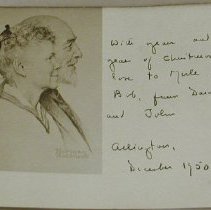 With years and
years of Christmas
love to Merle
Bob, from Dais
and John
Arlington,
December 1950